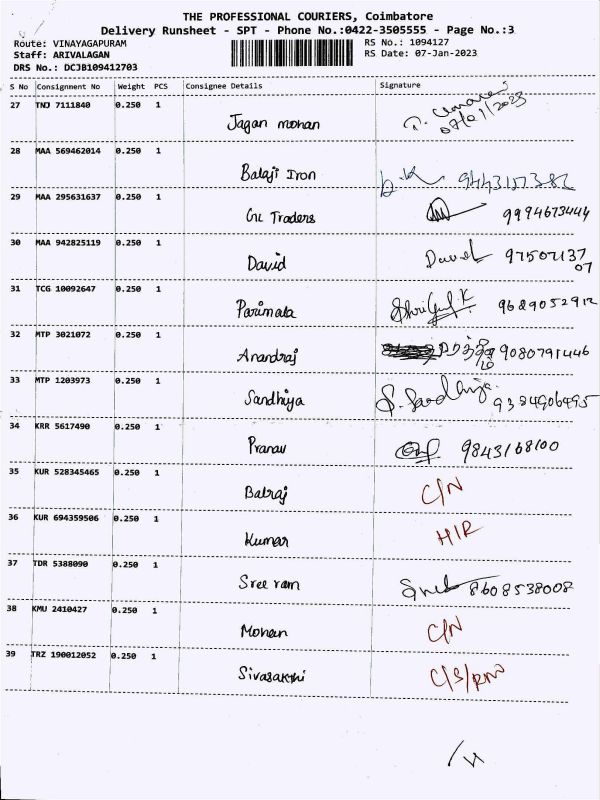 THE PROFESSIONAL COURIERS, Coimbatore
Delivery Runsheet - SPT - Phone No.:0422-3505555 - Page No.:3
Route: VINAYAGAPURAM RS No.: 1094127
Staff: ARIVALAGAN RS Date: 07-Jan-2023
DRS No.: DCJB109412703
S No Consignment No Weight PCS Consignee Details Signature
27 TNJ 7111840 0.250 1 Jagan mohan 07/01/2023
28 MAA 569462014 0.250 1 Balaji Iron
29 MAA 295631637 0.250 1 GK Traders 9994673444
30 MAA 942825119 0.250 1 David David 97507137
07
31 TCG 10092647 0.250 1 Parimala 9689052912
32 MTP 3021072 0.250 1 Anandraj 9080791446
33 MTP 1203973 0.250 1 Sandhiya S. Sandhiya 9384906495
34 KRR 5617490 0.250 1 Pranav 9843168100
35 KUR 528345465 0.250 1 Balraj C/N
36 KUR 694359506 0.250 1 Kumar H/R
37 TDR 5388090 0.250 1 Sree ram 8608538008
38 KMU 2410427 0.250 1 Mohan C/N
39 TRZ 190012052 0.250 1 Sivasakthi C/S/RN